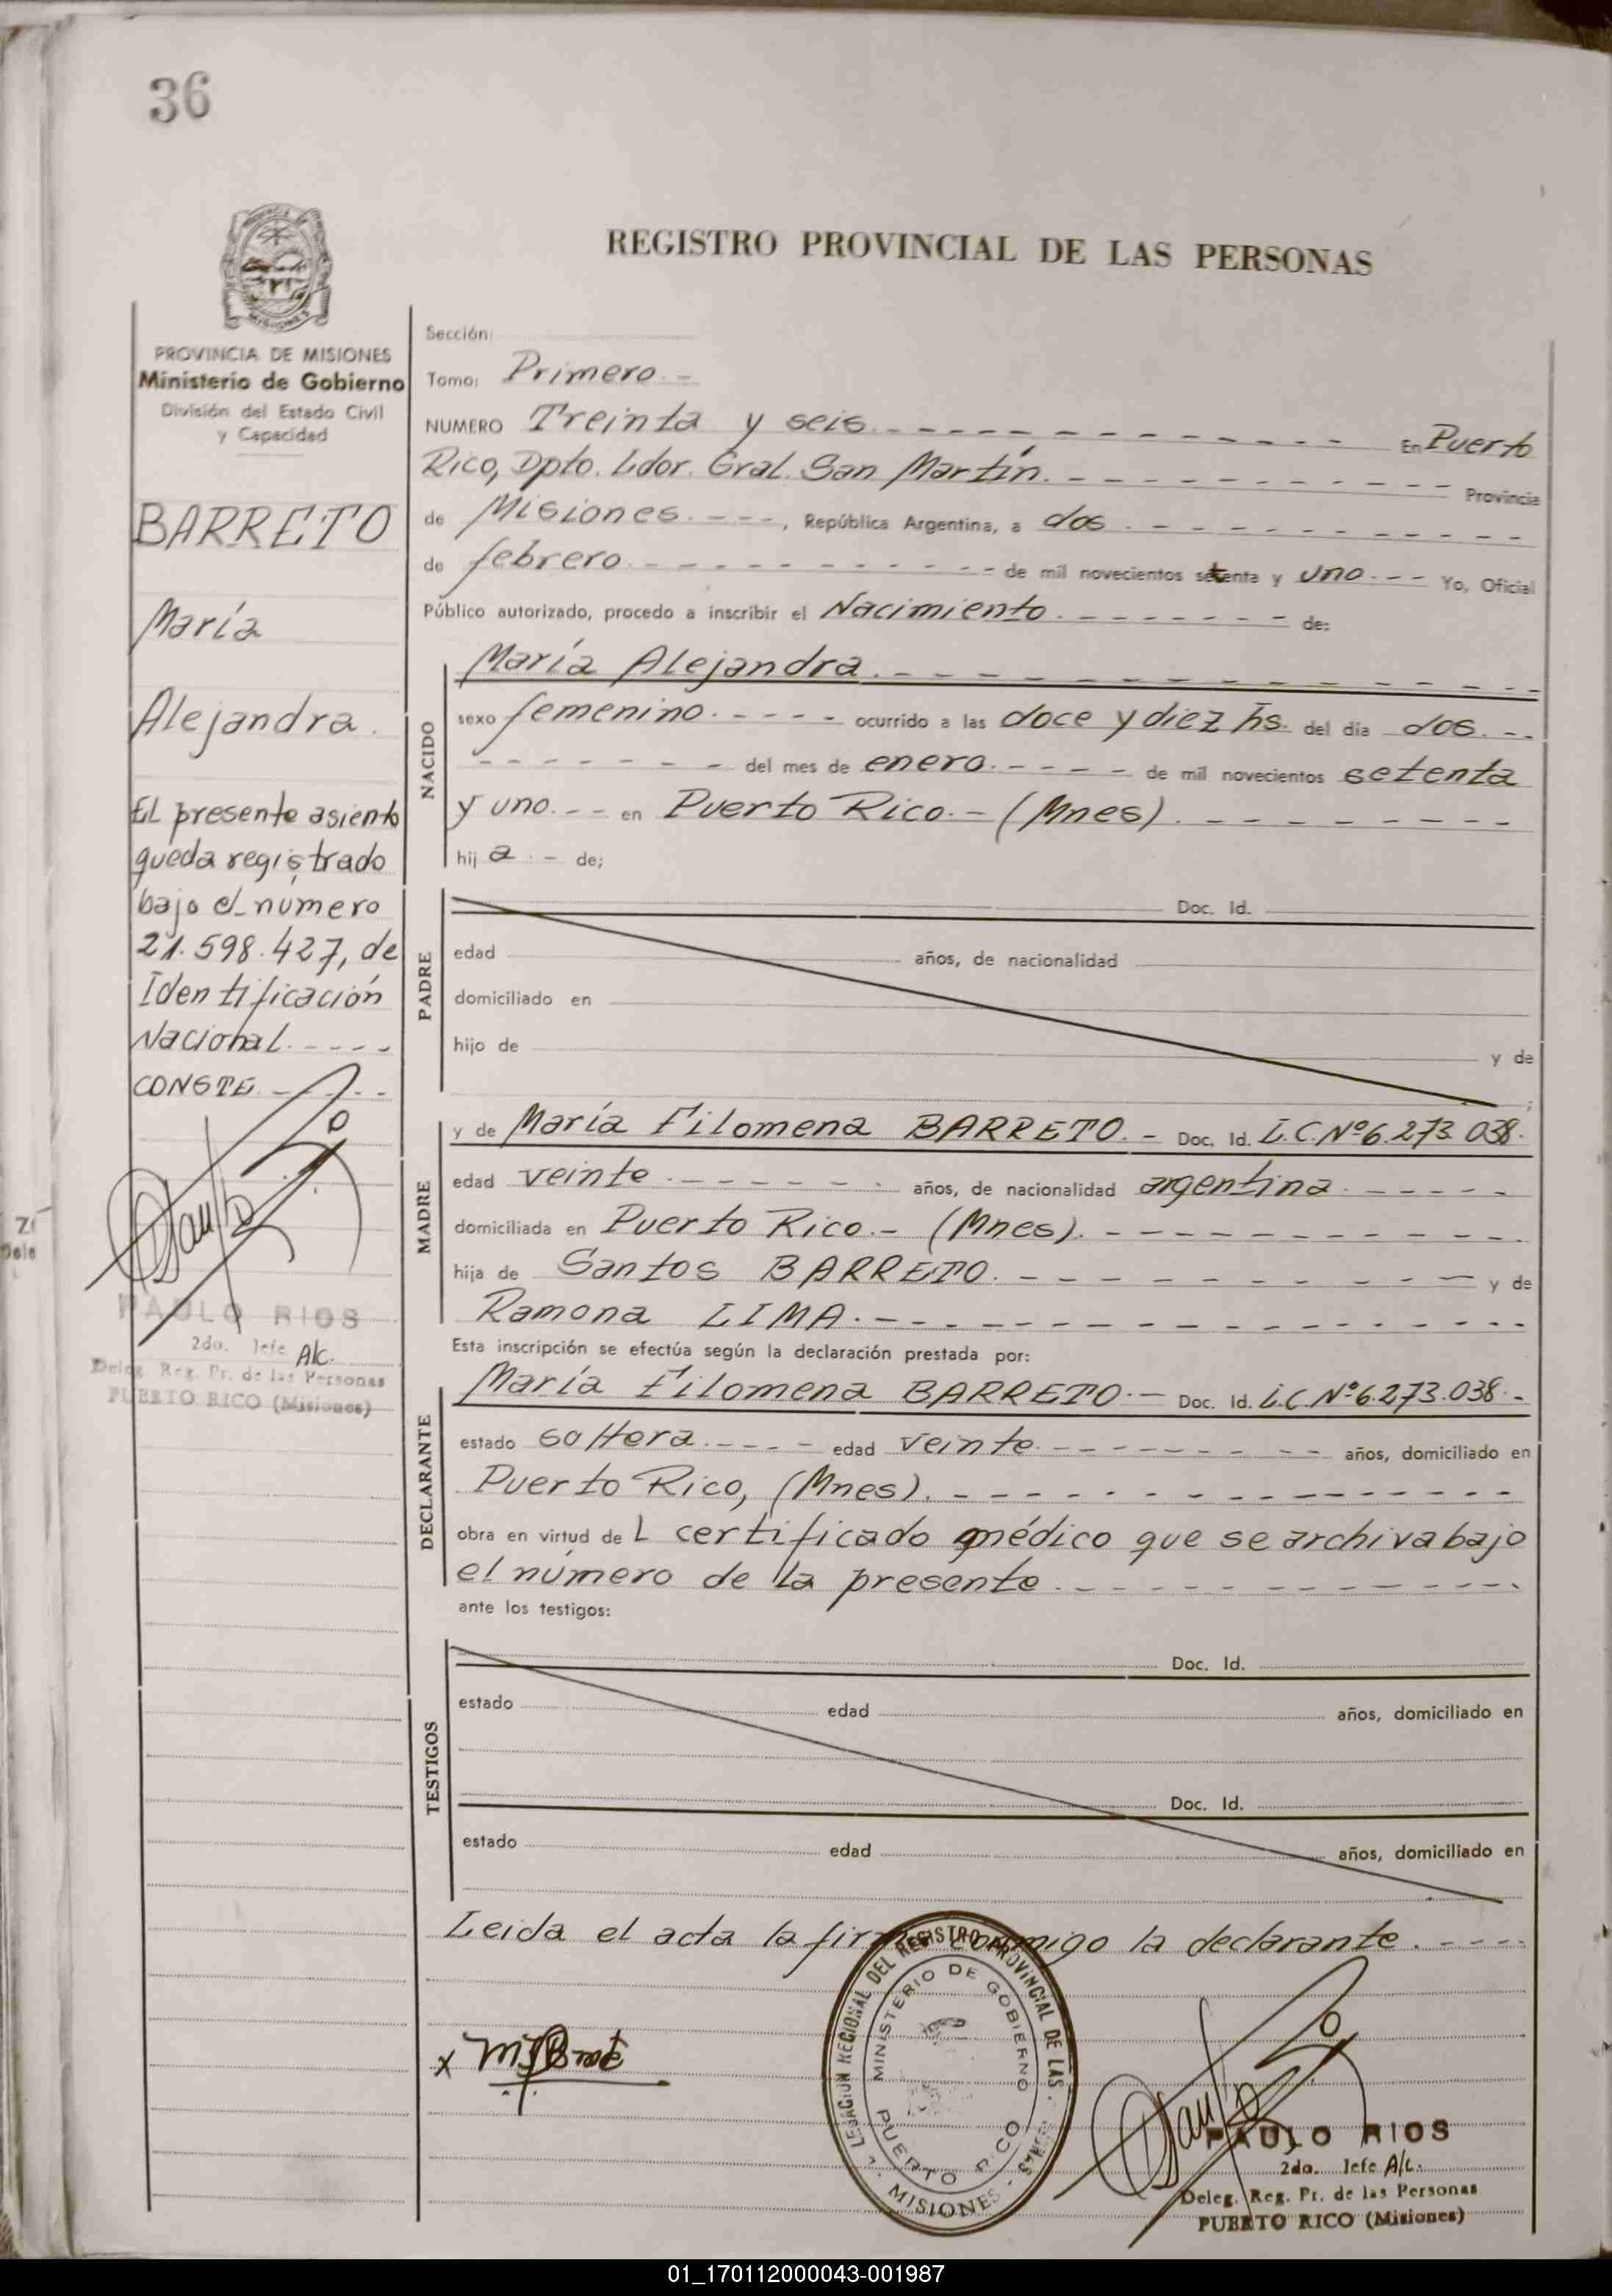 36
REGISTRO PROVINCIAL DE LAS PERSONAS
MISIONES
PROVINCIA DE MISIONES
Ministerio de Gobierno
División del Estado Civil
y Capacidad
BARRETO
María
Alejandra.
El presente asiento
queda registrado
bajo el número
21.598.427, de
Identificación
Nacional.----
CONSTE.----
PAULO RIOS
2do. Jefe A/c.
Deleg. Reg. Pr. de las Personas
PUERTO RICO (Misiones)
Sección:
Tomo: Primero.-
NUMERO Treinta y seis.------------ En Puerto
Rico, Dpto. Ldor. Gral. San Martín.---------- Provincia
de Misiones.---, República Argentina, a dos.--------
de febrero.---------- de mil novecientos setenta y uno.-- Yo, Oficial
Público autorizado, procedo a inscribir el Nacimiento.------- de:
NACIDO
María Alejandra.--------------
sexo femenino.---- ocurrido a las doce y diez hs. del día dos.--
------- del mes de enero.---- de mil novecientos setenta
y uno.-- en Puerto Rico.- (Mnes).--------
hij a.- de;
PADRE
Doc. Id.
edad años, de nacionalidad
domiciliado en
hijo de y de
MADRE
y de María Filomena BARRETO.- Doc. Id. L.C.Nº6.273.038.
edad veinte.------ años, de nacionalidad argentina.-----
domiciliada en Puerto Rico.- (Mnes).-----------
hija de Santos BARRETO.--------- y de
Ramona LIMA.---------------
Esta inscripción se efectúa según la declaración prestada por:
DECLARANTE
María Filomena BARRETO.- Doc. Id. L.C.Nº6.273.038.-
estado soltera.---- edad veinte.-------- años, domiciliado en
Puerto Rico, (Mnes).--------------
obra en virtud de L certificado médico que se archiva bajo
el número de la presente.------------
ante los testigos:
TESTIGOS
Doc. Id.
estado edad años, domiciliado en
Doc. Id.
estado edad años, domiciliado en
Leida el acta la firma conmigo la declarante.----
x
REGIONAL DEL REGISTRO PROVINCIAL DE LAS
MINISTERIO DE GOBIERNO
PUERTO RICO
MISIONES
PAULO RIOS
2do. Jefe A/c.
Deleg. Reg. Pr. de las Personas
PUERTO RICO (Misiones)
01_170112000043-001987